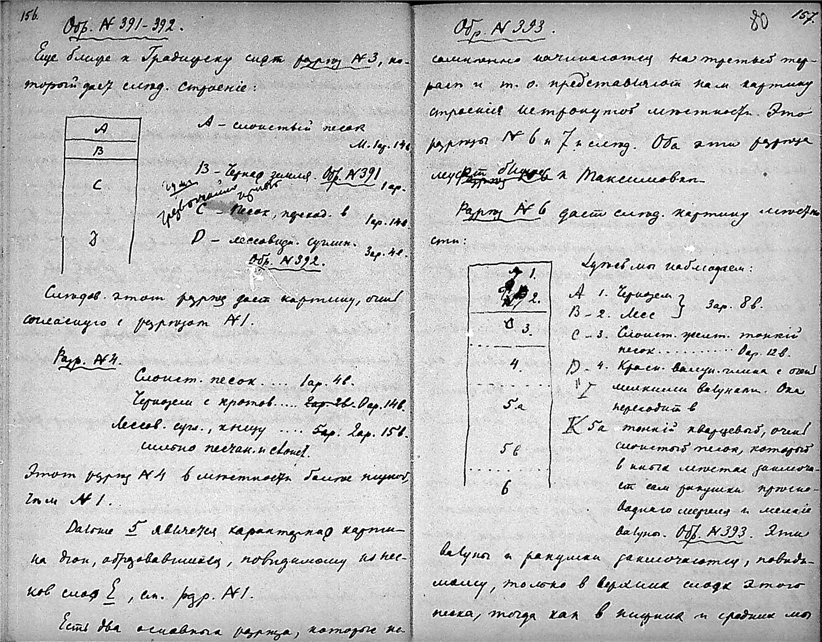 156.
Обр. № 391-392.
Еще ближе к Градижску сист. разрез № 3, ко-
торый дает следд. строение:
A
B
C
D
A - слоистый песок
М. 1ар. 14в.
B - Черная земля. Обр. № 391
1ар.
C - Песок, перех. в
1ар. 14в.
D - лессовидн. суглин.
Обр. № 392.
3ар. 4в.
Следов. этот разрез дает картину, очень
согласную с разрезом № 1.
Разр. № 4.
Слоист. песок .... 1ар. 4в.
Чернозем с кротов. .... 0ар. 14в.
Лессов. суг., книзу .... 2ар. 15в.
сильно песчан. и слоист.
Этот разрез № 4 в местности более низкой,
чем № 1.
Дальше 5 является характерная карти-
на дюн, образовавшихся, повидимому из пес-
ков слоя E, см. разр. № 1.
Есть два основных разреза, которые не-
157.
80
Обр. № 393.
сомненно начинаются на третьей тер-
расе и т. о. представляют нам картину
строения нетронутой местности. Это
разрезы № 6 и 7 и след. Оба эти разреза
ближе к Максимовке.
Разрез № 6 дает следд. картину местно-
сти:
1.
2.
C 3.
4
5а
5в
6
Здесь мы наблюдаем:
A 1. Чернозем
B - 2. Лесс
3ар. 8в.
C - 3. Слоист. желт. тонкий
песок .......... 0ар. 12в.
D - 4. Красн. валун. глина с очень
I мелкими валунами. Она
переходит в
K 5а тонкий кварцевый, очень
слоистый песок, который
в иных местах заключа-
ет сам ракушки пресно-
водного мергеля и мелкие
валуны. Обр. № 393. Эти
валуны и ракушки заключаются, повиди-
мому, только в верхних слоях этого
песка, тогда как в нижних и средних мы